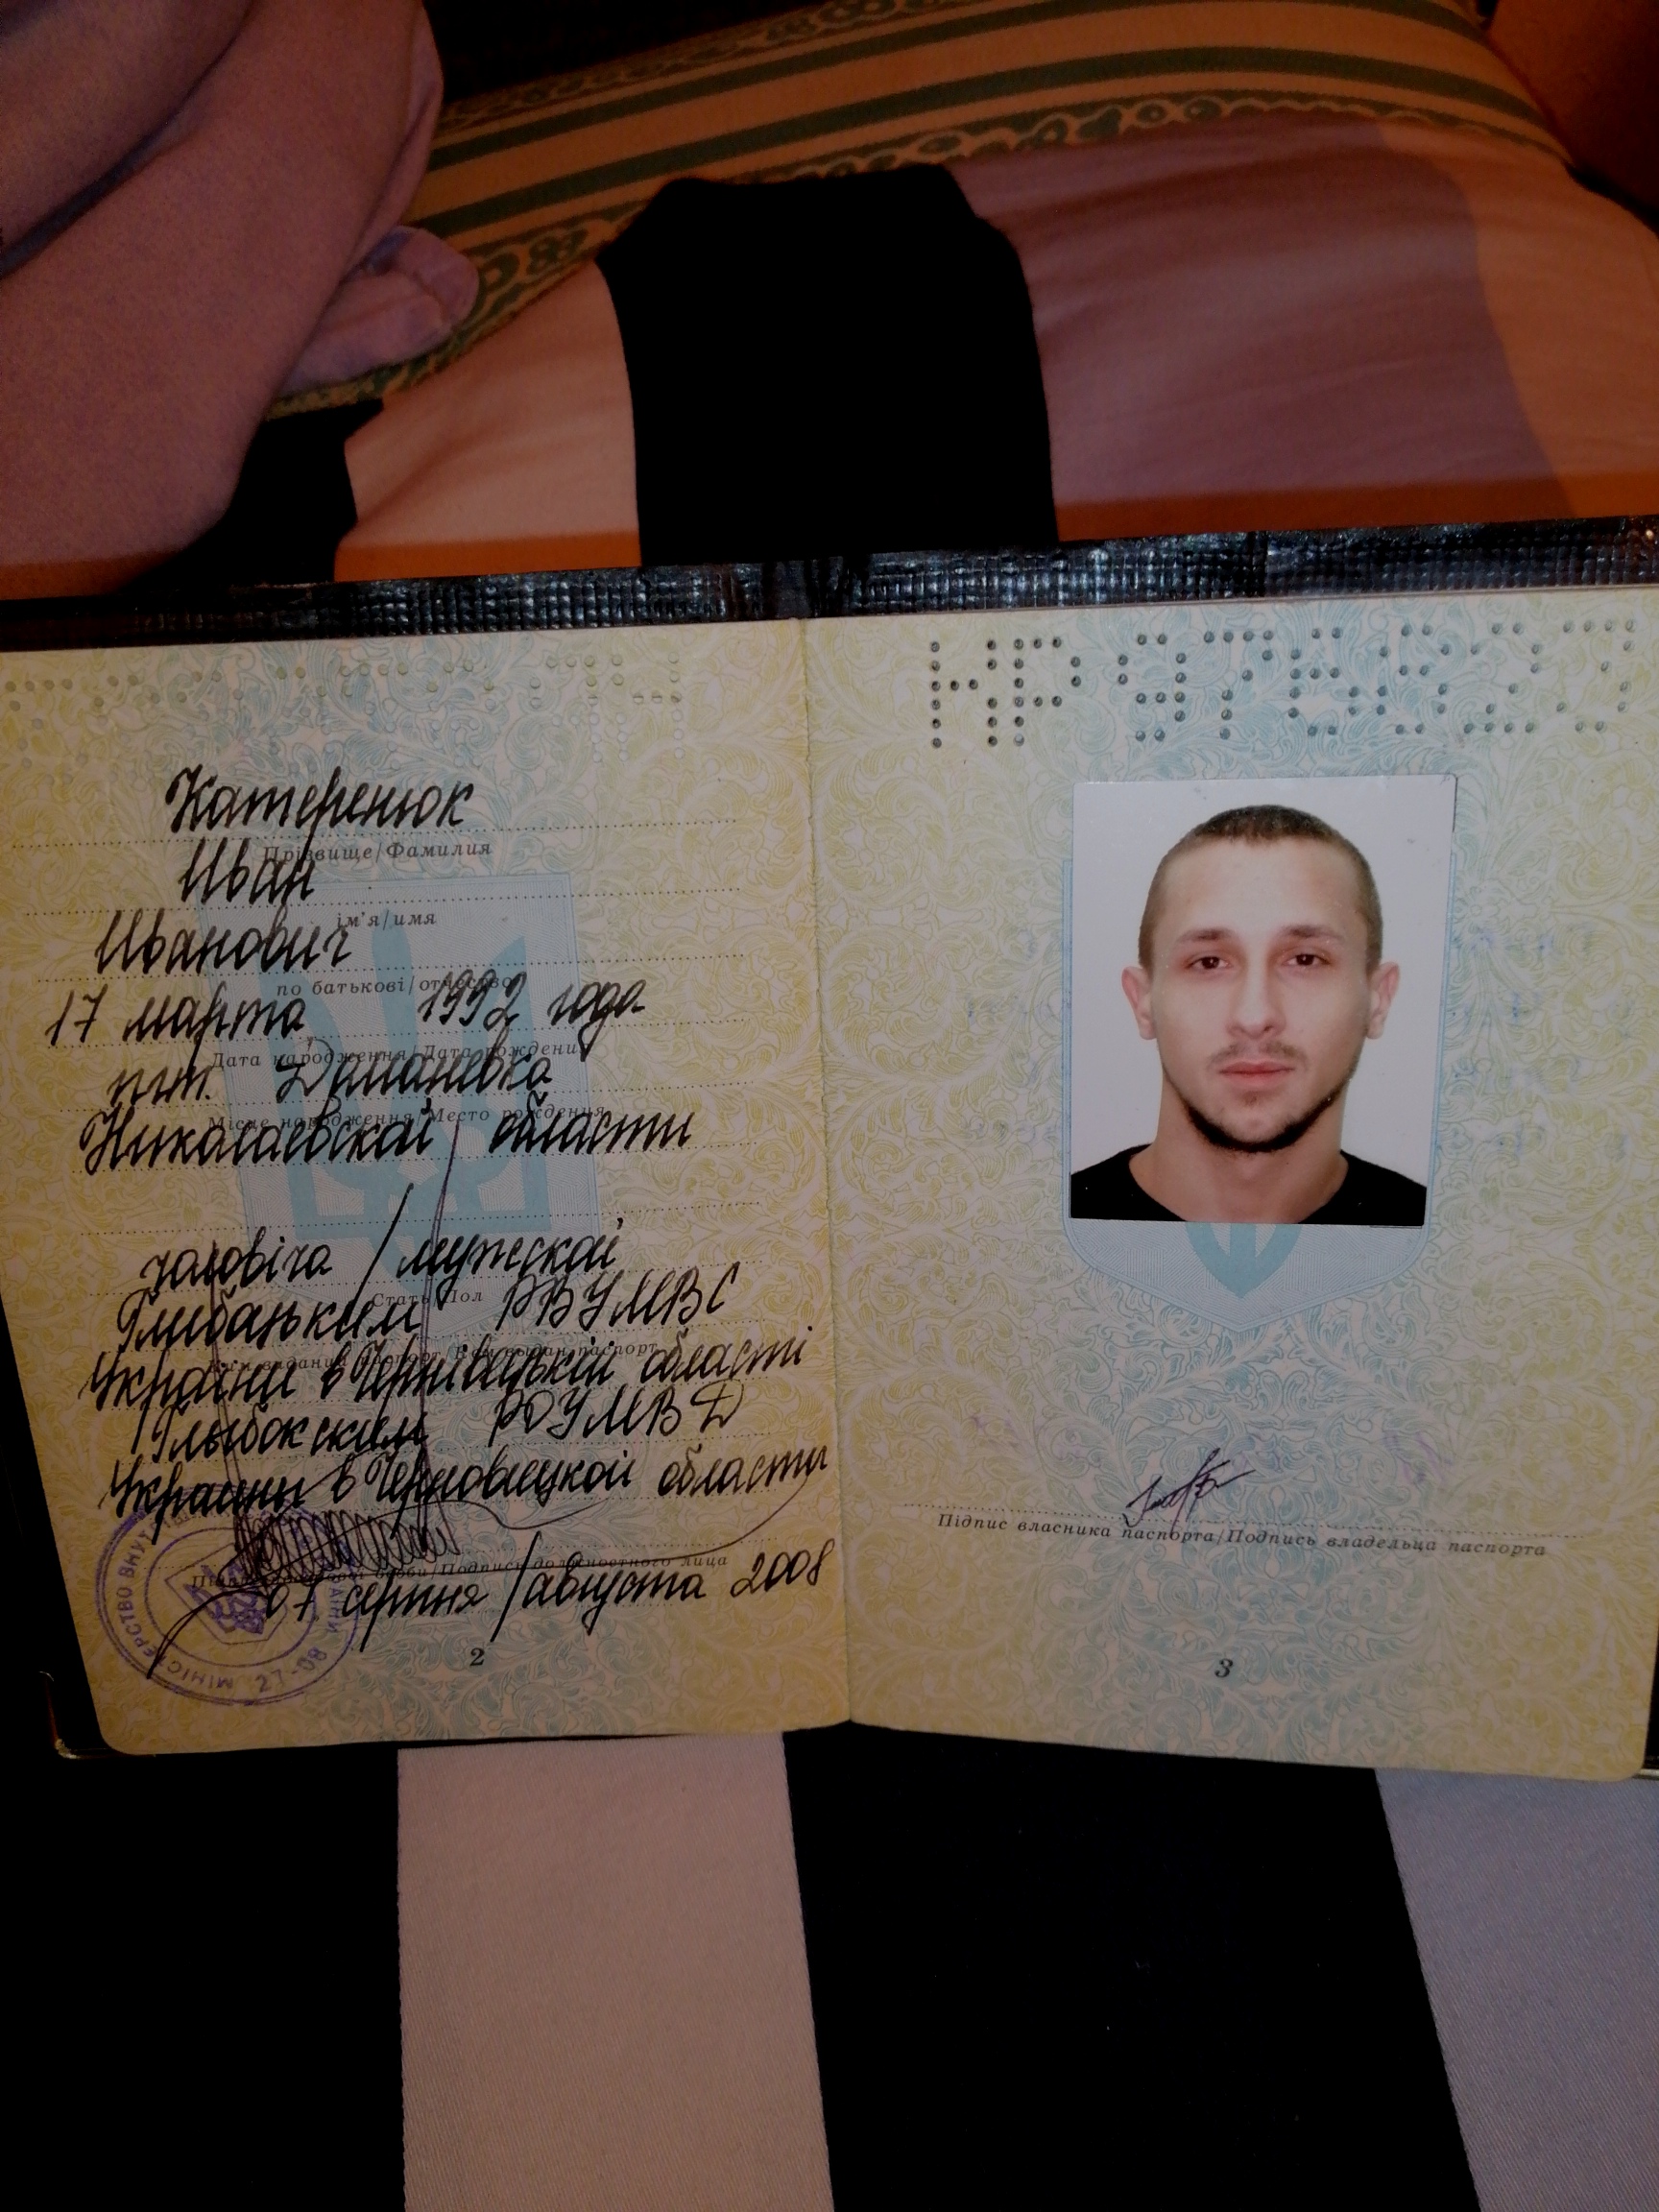 Катеренюк
Прізвище/Фамилия
Иван
ім'я/имя
Иванович
по батькові/отчество
17 марта 1992 года
Дата народження/Дата рождения
пгт. Доманевка
Місце народження/Место рождения
Николаевской области
чоловіча / мужской
Стать/Пол
Глибоцьким РВУМВС
України в Чернівецькій області
Глыбокским РОУМВД
Украины в Черновицкой области
Подпись должностного лица
07 серпня / августа 2008
МІНІСТЕРСТВО ВНУ
27-08
2
НР
Підпис власника паспорта/Подпись владельца паспорта
3